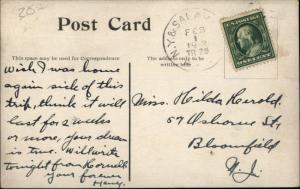 25-
Post Card
This space may be used for Correspondence
The address only to be written here
N.Y. & SALAM
FEB
1
TR 28
ONE CENT
Wish I was home
again sick of this
trip, think it will
last for 2 weeks
or more, your dream
is true. Will write
tonight from Hornell
your forever
Harry.
Miss. Hilda Herold.
57
Bloomfield
N.J.